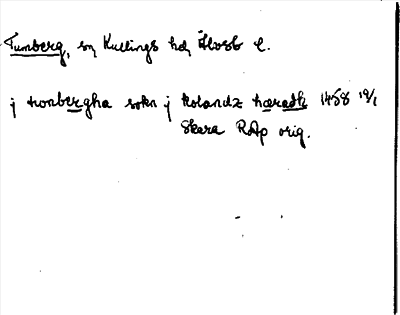 Tumberg, sn Kullings hd, Älvsb l.
j tonbergha sokn j kolandz hæradh 1458 19/1
Skara RAp orig.